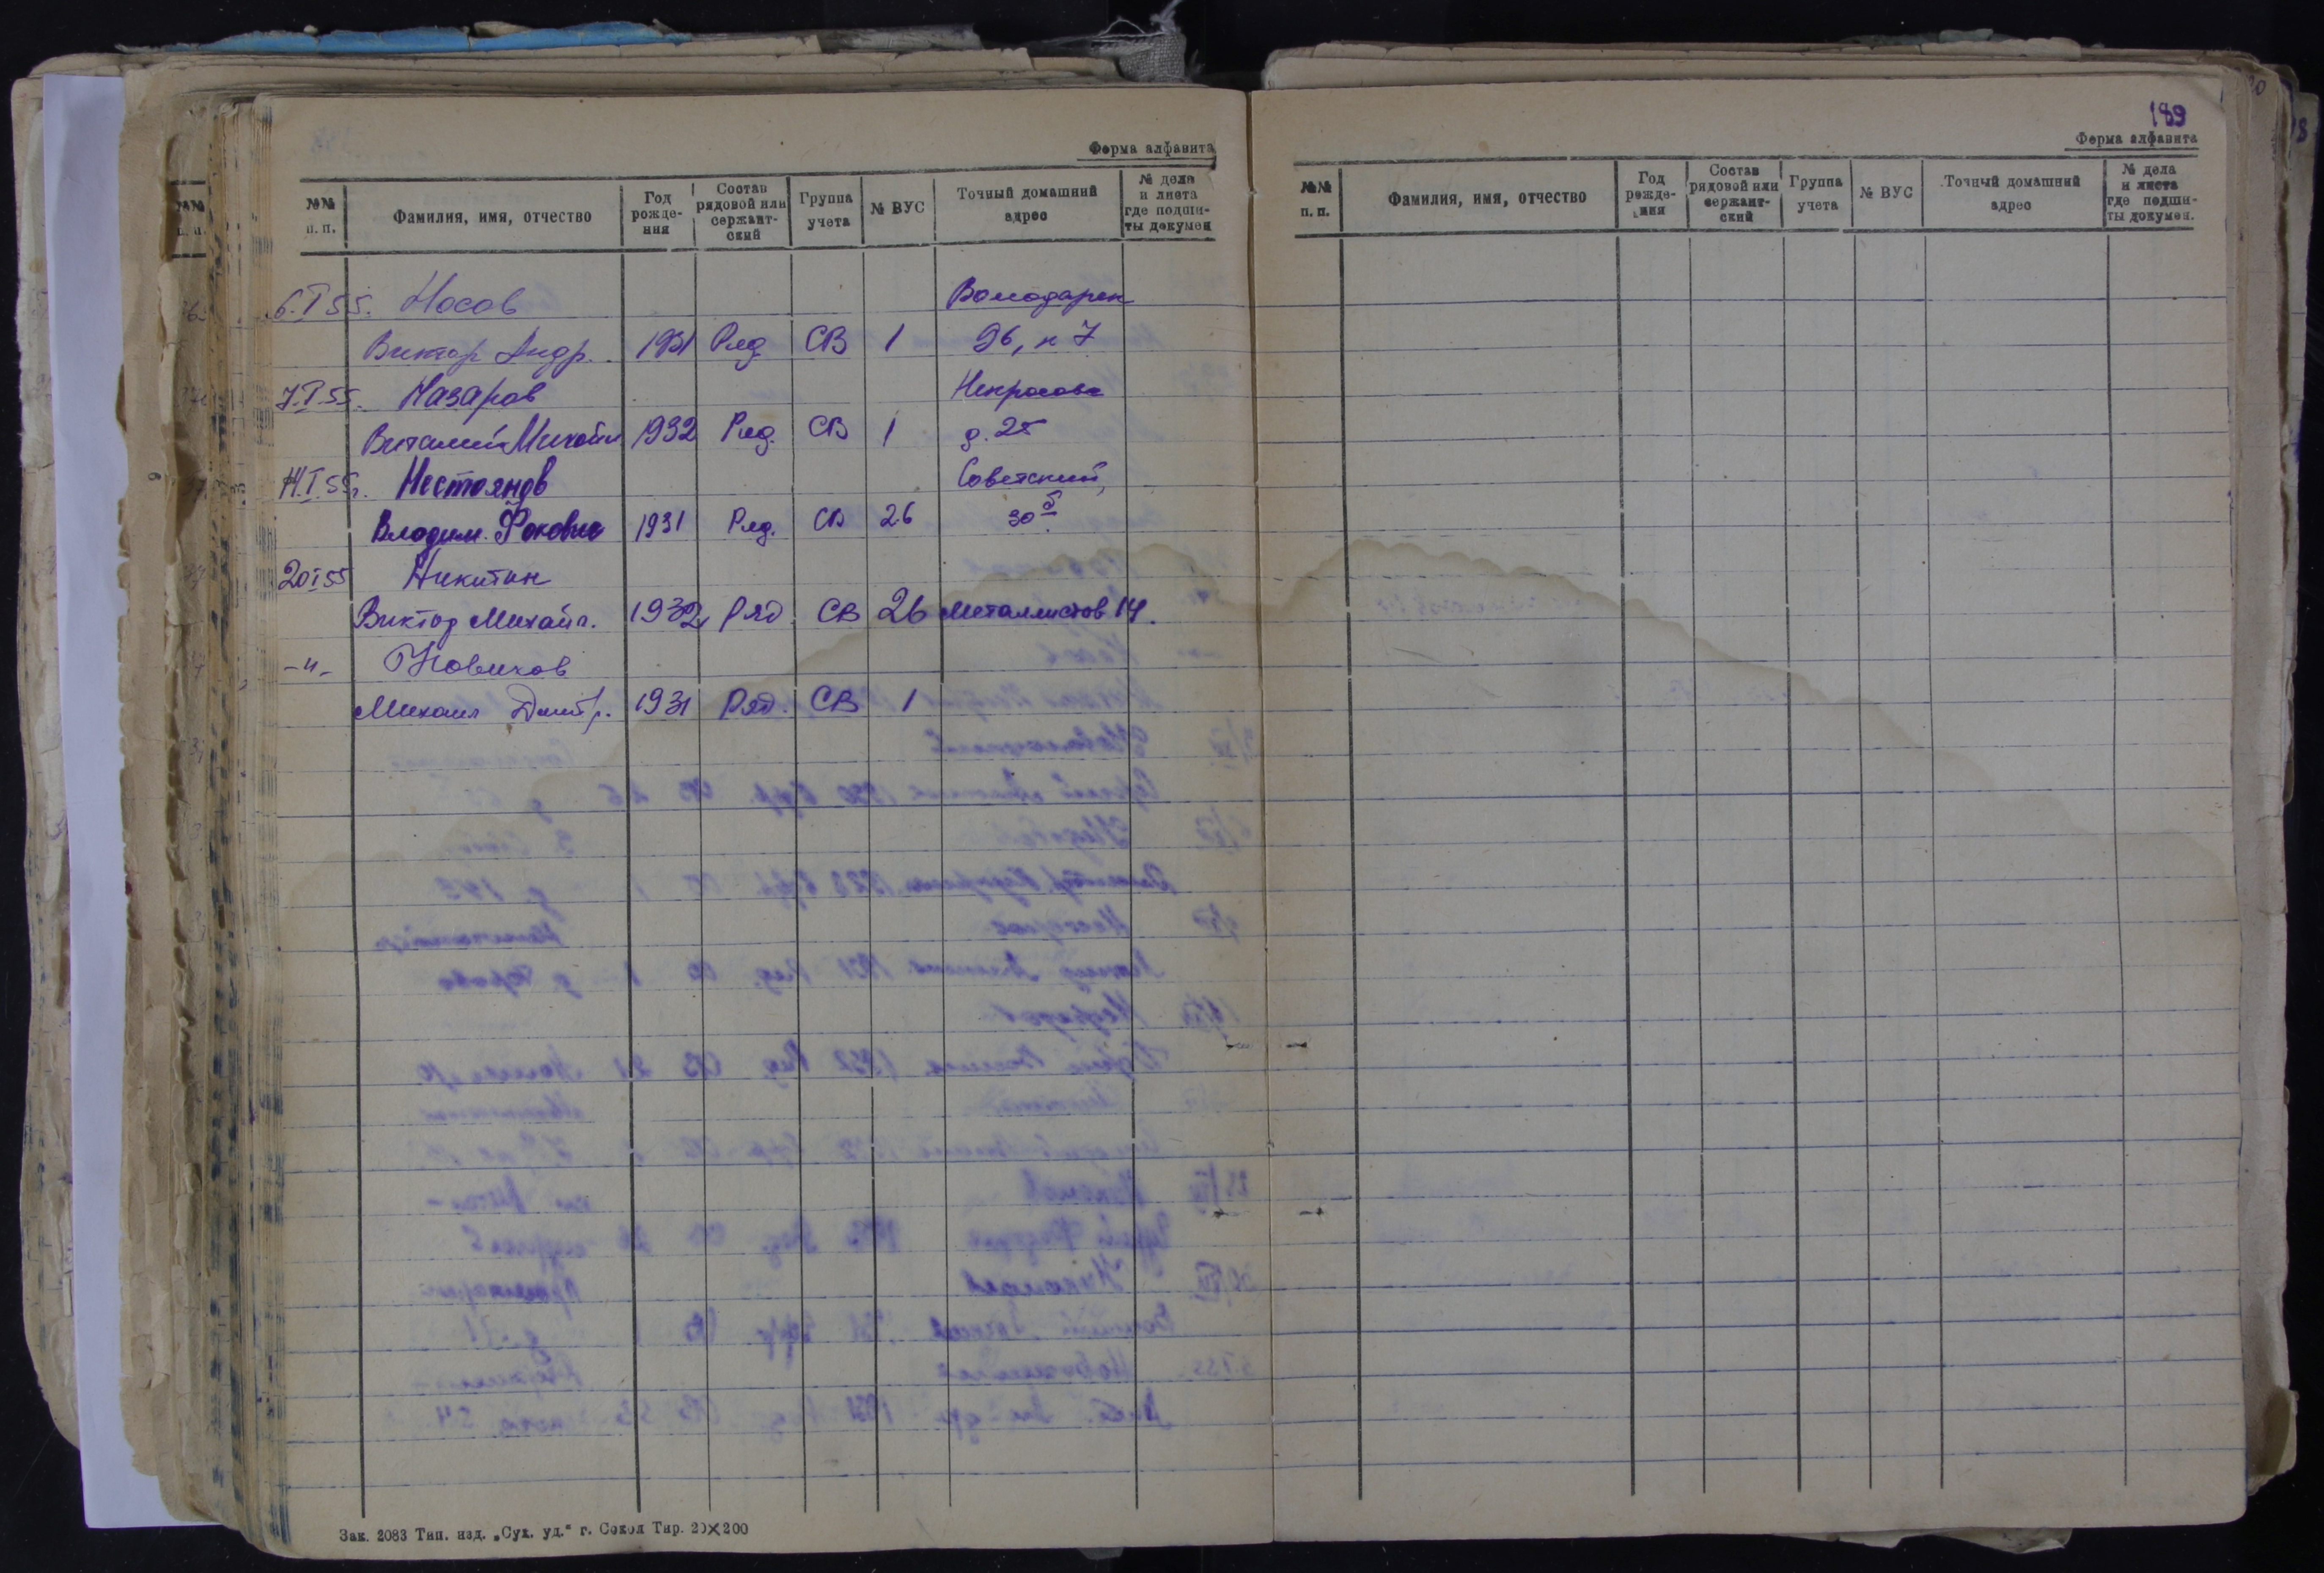 Форма алфавита
№№ п. п. Фамилия, имя, отчество Год рожде- ния Состав рядовой или сержант- ский Группа учета № ВУС Точный домашний адрес № дела и листа где подши- ты докумен
6.I 55. Носов Володарск
Виктор Андр. 1931 Ряд СВ 1 96, к 7
7.I 55. Назаров Некрасова
Виталий Михайл 1932 Ряд. СВ 1 д. 25
14.I 55г. Нестоянов Советский,
Владим. Фокович 1931 Ряд. СВ 26 30 б
20 I 55 Никитин
Виктор Михайл. 1932 Ряд. СВ 26 Металлистов 14.
-"- Новиков
Михаил Дмитр. 1931 Ряд. СВ 1
Зак. 2083 Тип. изд. „Сух. уд.“ г. Сокол Тир. 20×200
189
Форма алфавита
№№ п. п. Фамилия, имя, отчество Год рожде- ния Состав рядовой или сержант- ский Группа учета № ВУС Точный домашний адрес № дела и листа где подши- ты докумен.